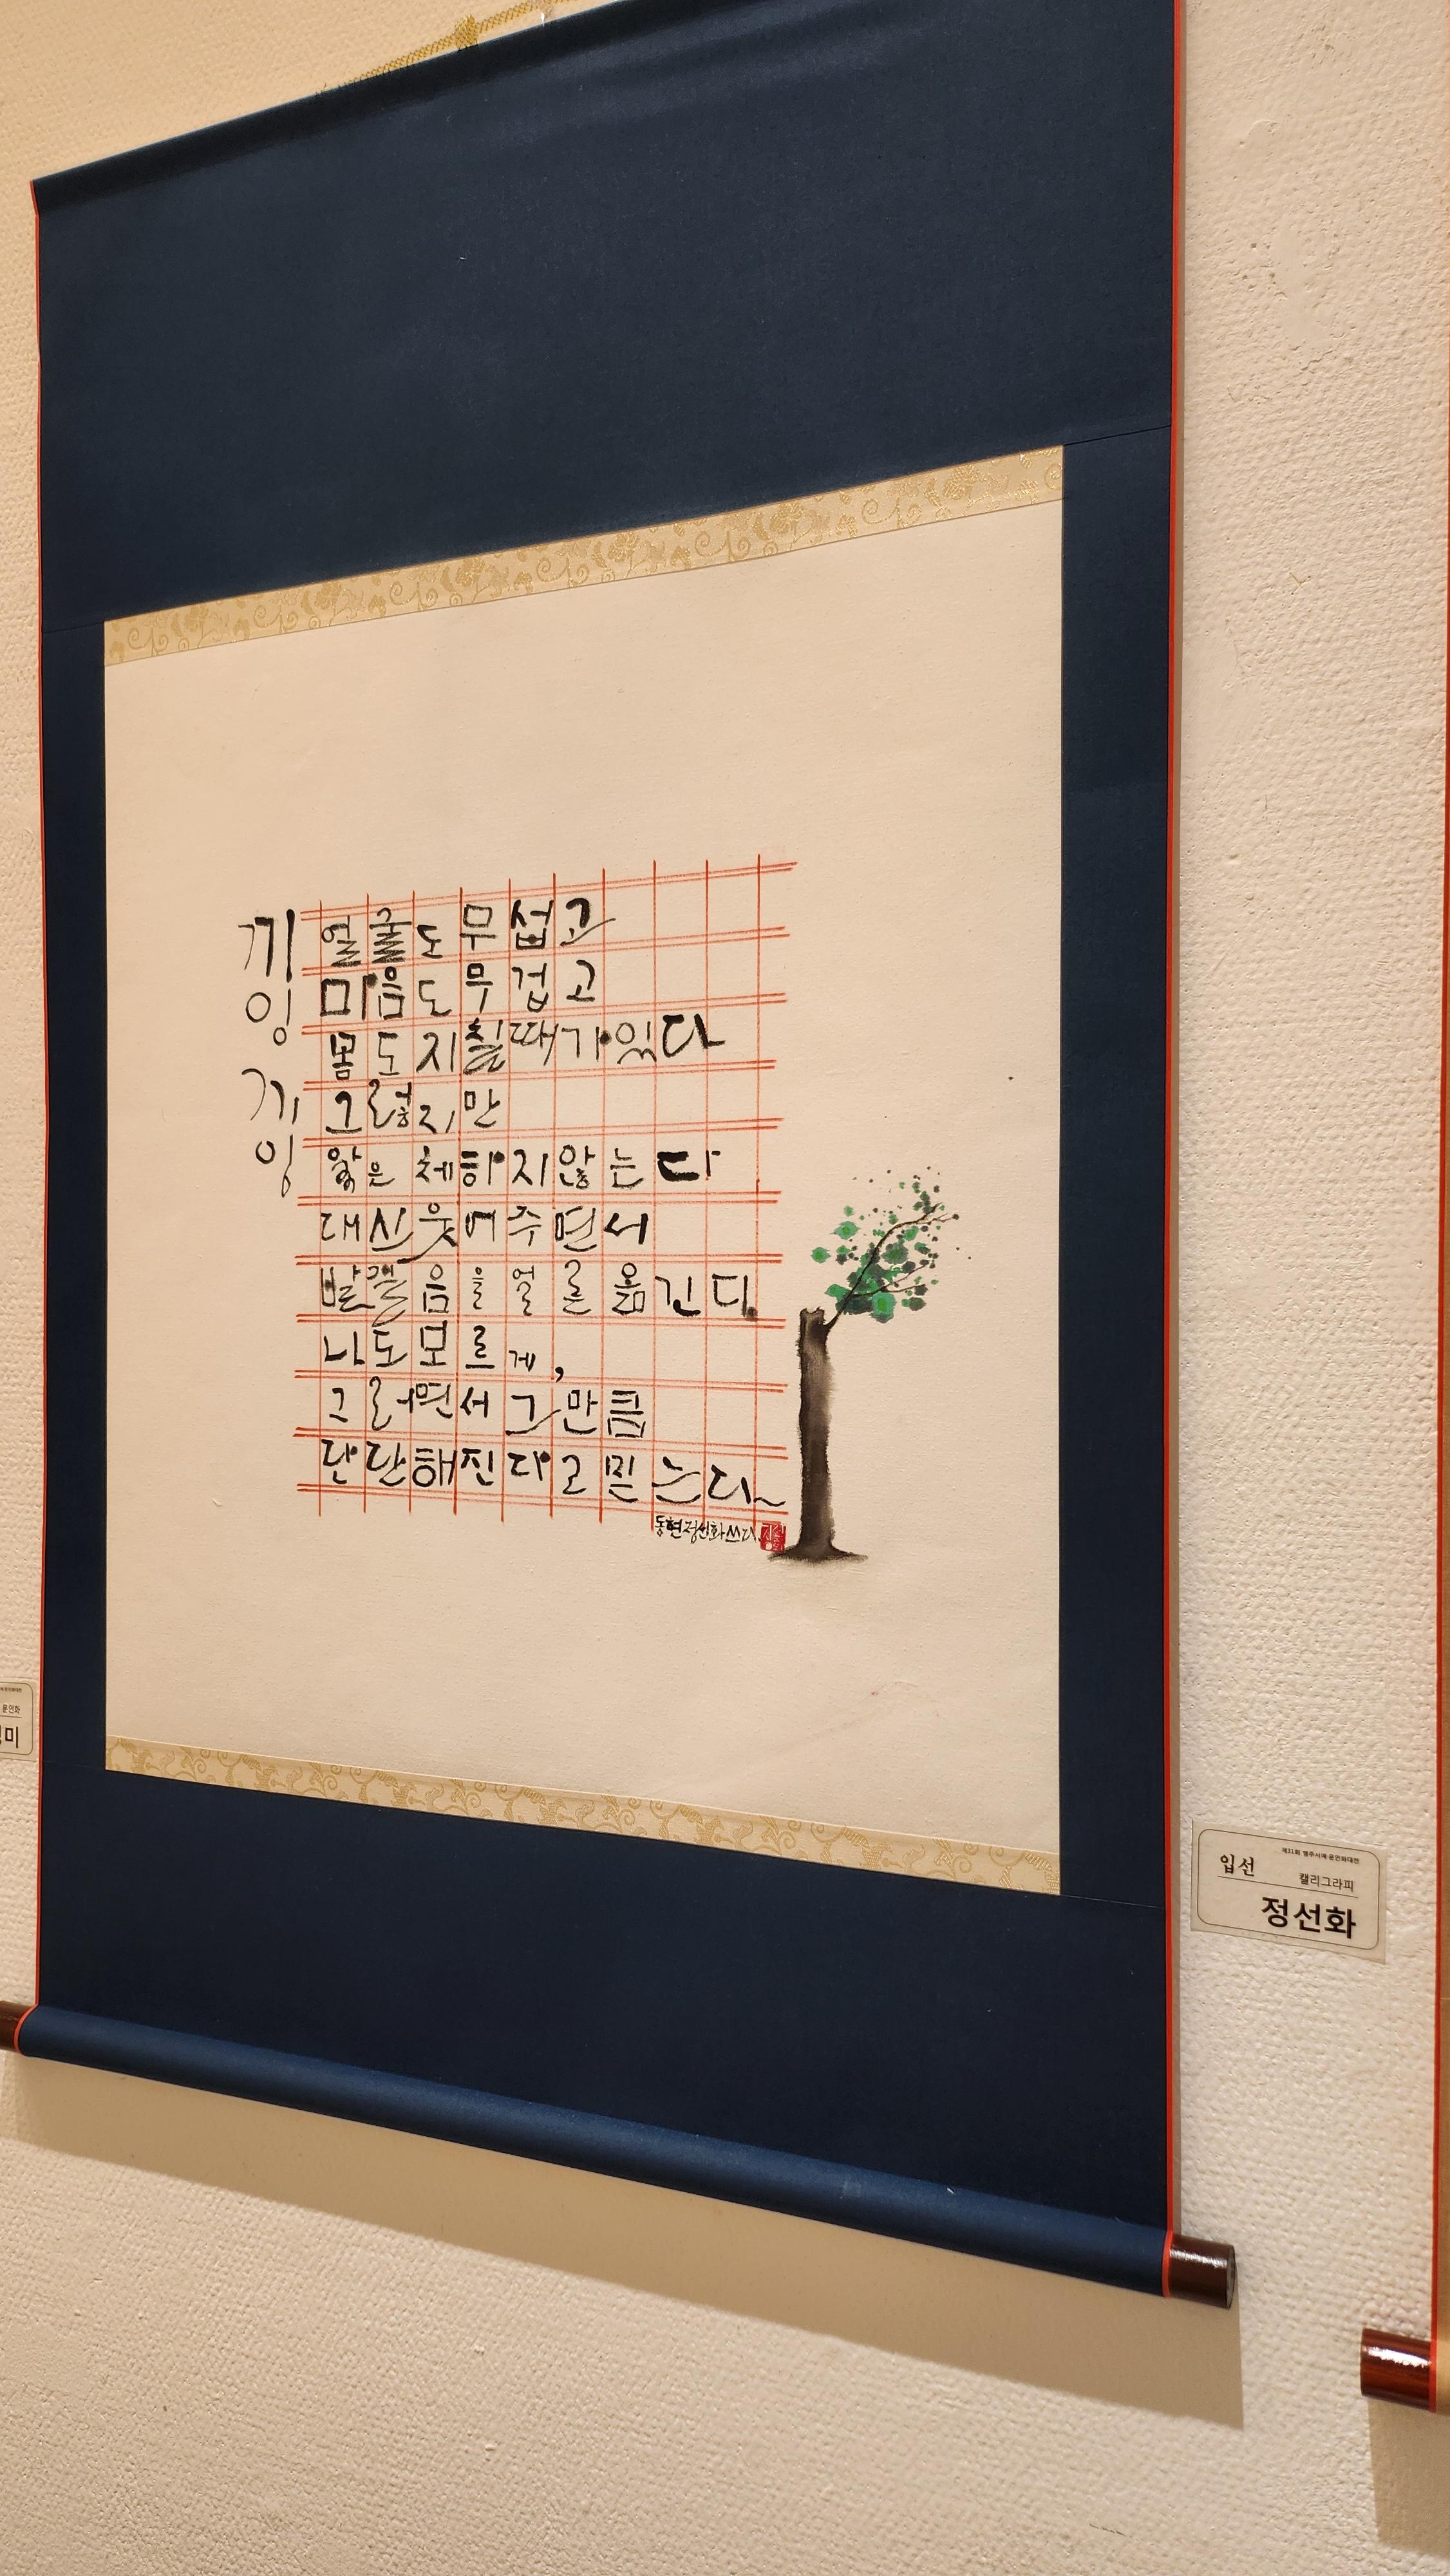 끼잉
끼잉
얼굴도무섭고
마음도무겁고
몸도지칠때가있다
그렇지만
앓은체하지않는다
대신웃어주면서
발걸음을얼른옮긴다
나도모르게,
그러면서그만큼
단단해진다고믿는다~
동현정선화쓰다
문인화
제31회 행주서예·문인화대전
입선
캘리그라피
정선화